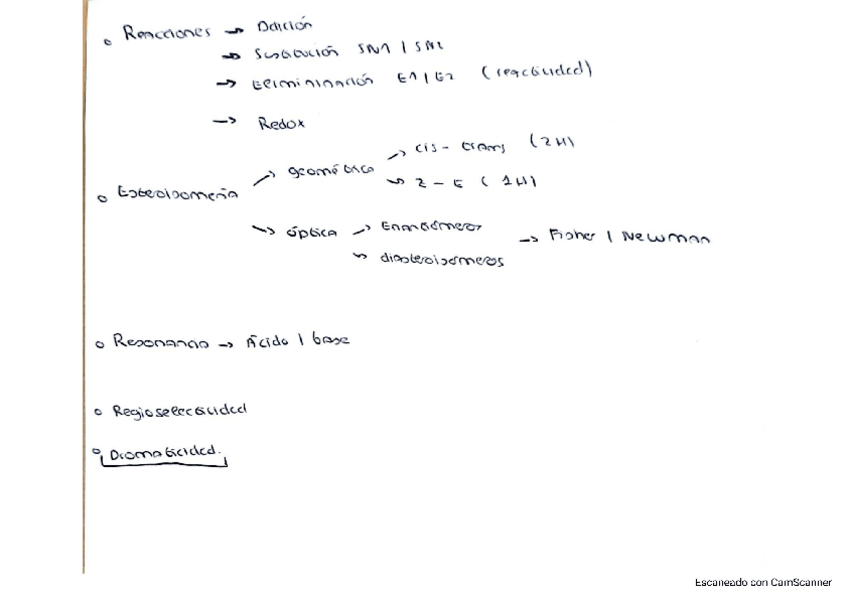 o Reacciones → Adición
→ Sustitución SN1 / SN2
→ Eliminación E1 / E2 (reactividad)
→ Redox
o Estereoisomería → geométrica → cis - trans (2H)
→ Z - E (1H)
→ óptica → Enantiómeros → Fisher / Newman
→ diastereoisómeros
o Resonancia → Ácido / base
o Regioselectividad
o Aromaticidad.
Escaneado con CamScanner